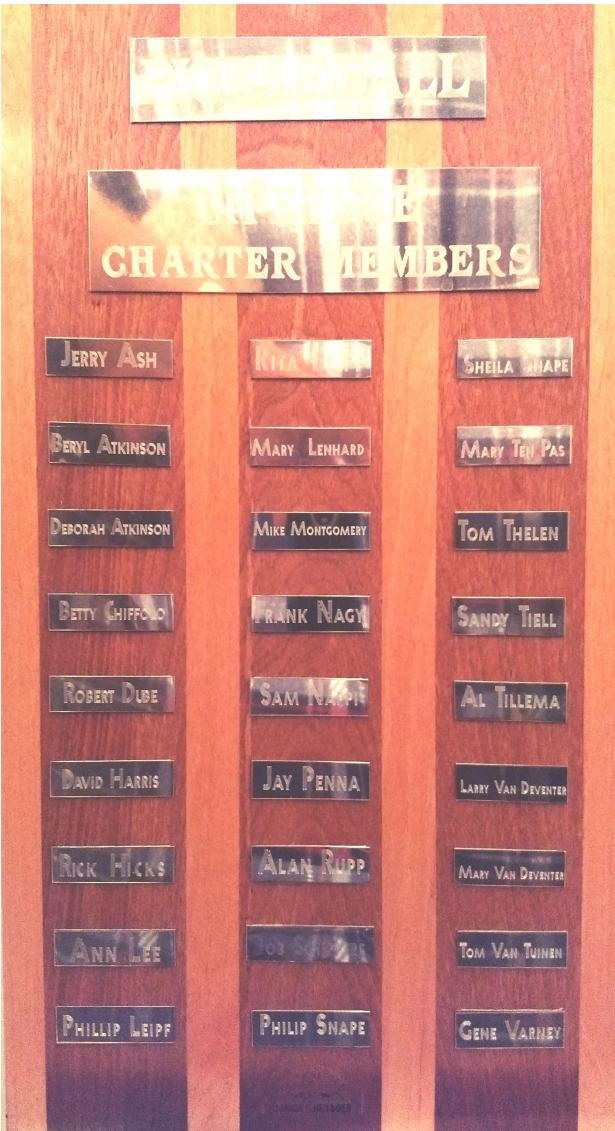 PICKLEBALL
LIFETIME
CHARTER MEMBERS
JERRY ASH
BERYL ATKINSON
DEBORAH ATKINSON
BETTY CHIFFOLO
ROBERT DUBE
DAVID HARRIS
RICK HICKS
ANN LEE
PHILLIP LEIPF
RITA
MARY LENHARD
MIKE MONTGOMERY
FRANK NAGY
SAM NAPPI
JAY PENNA
ALAN RUPP
PHILIP SNAPE
SHEILA SNAPE
MARY TEN PAS
TOM THELEN
SANDY TIELL
AL TILLEMA
LARRY VAN DEVENTER
MARY VAN DEVENTER
TOM VAN TUINEN
GENE VARNEY